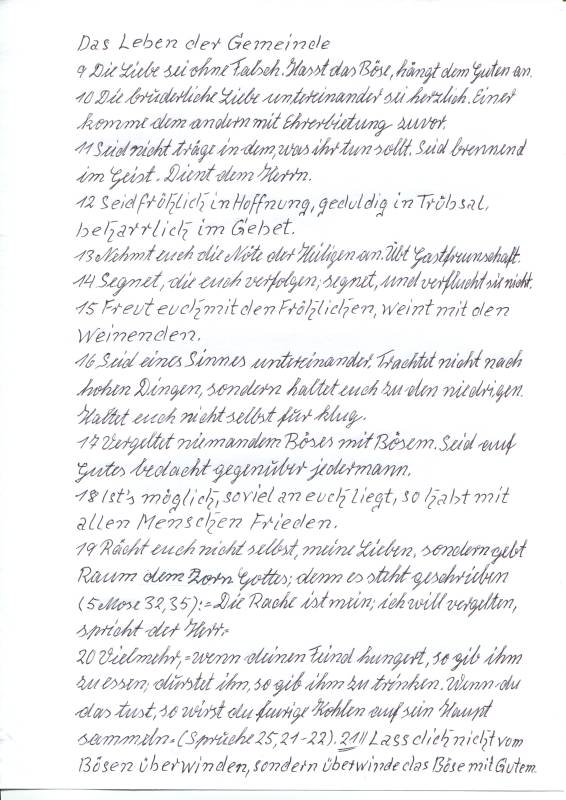 Das Leben der Gemeinde
9 Die Liebe sei ohne Falsch. Hasst das Böse, hängt dem Guten an.
10 Die brüderliche Liebe untereinander sei herzlich. Einer
komme dem andern mit Ehrerbietung zuvor.
11 Seid nicht träge in dem, was ihr tun sollt. Seid brennend
im Geist. Dient dem Herrn.
12 Seid fröhlich in Hoffnung, geduldig in Trübsal,
beharrlich im Gebet.
13 Nehmt euch die Nöte der Heiligen an. Übt Gastfreunschaft.
14 Segnet, die euch verfolgen; segnet, und verflucht sie nicht.
15 Freut euch mit den Fröhlichen, weint mit den
Weinenden.
16 Seid eines Sinnes untereinander. Trachtet nicht nach
hohen Dingen, sondern haltet euch zu den niedrigen.
Haltet euch nicht selbst für klug.
17 Vergeltet niemandem Böses mit Bösem. Seid auf
Gutes bedacht gegenüber jedermann.
18 Ist's möglich, soviel an euch liegt, so habt mit
allen Menschen Frieden.
19 Rächt euch nicht selbst, meine Lieben, sondern gebt
Raum dem Zorn Gottes; denn es steht geschrieben
(5 Mose 32,35): =Die Rache ist mein; ich will vergelten,
spricht der Herr=
20 Vielmehr, =wenn deinen Feind hungert, so gib ihm
zu essen; dürstet ihn, so gib ihm zu trinken. Wenn du
das tust, so wirst du feurige Kohlen auf sein Haupt
sammeln= (Sprüche 25,21-22). 21|| Lass dich nicht vom
Bösen überwinden, sondern überwinde das Böse mit Gutem.